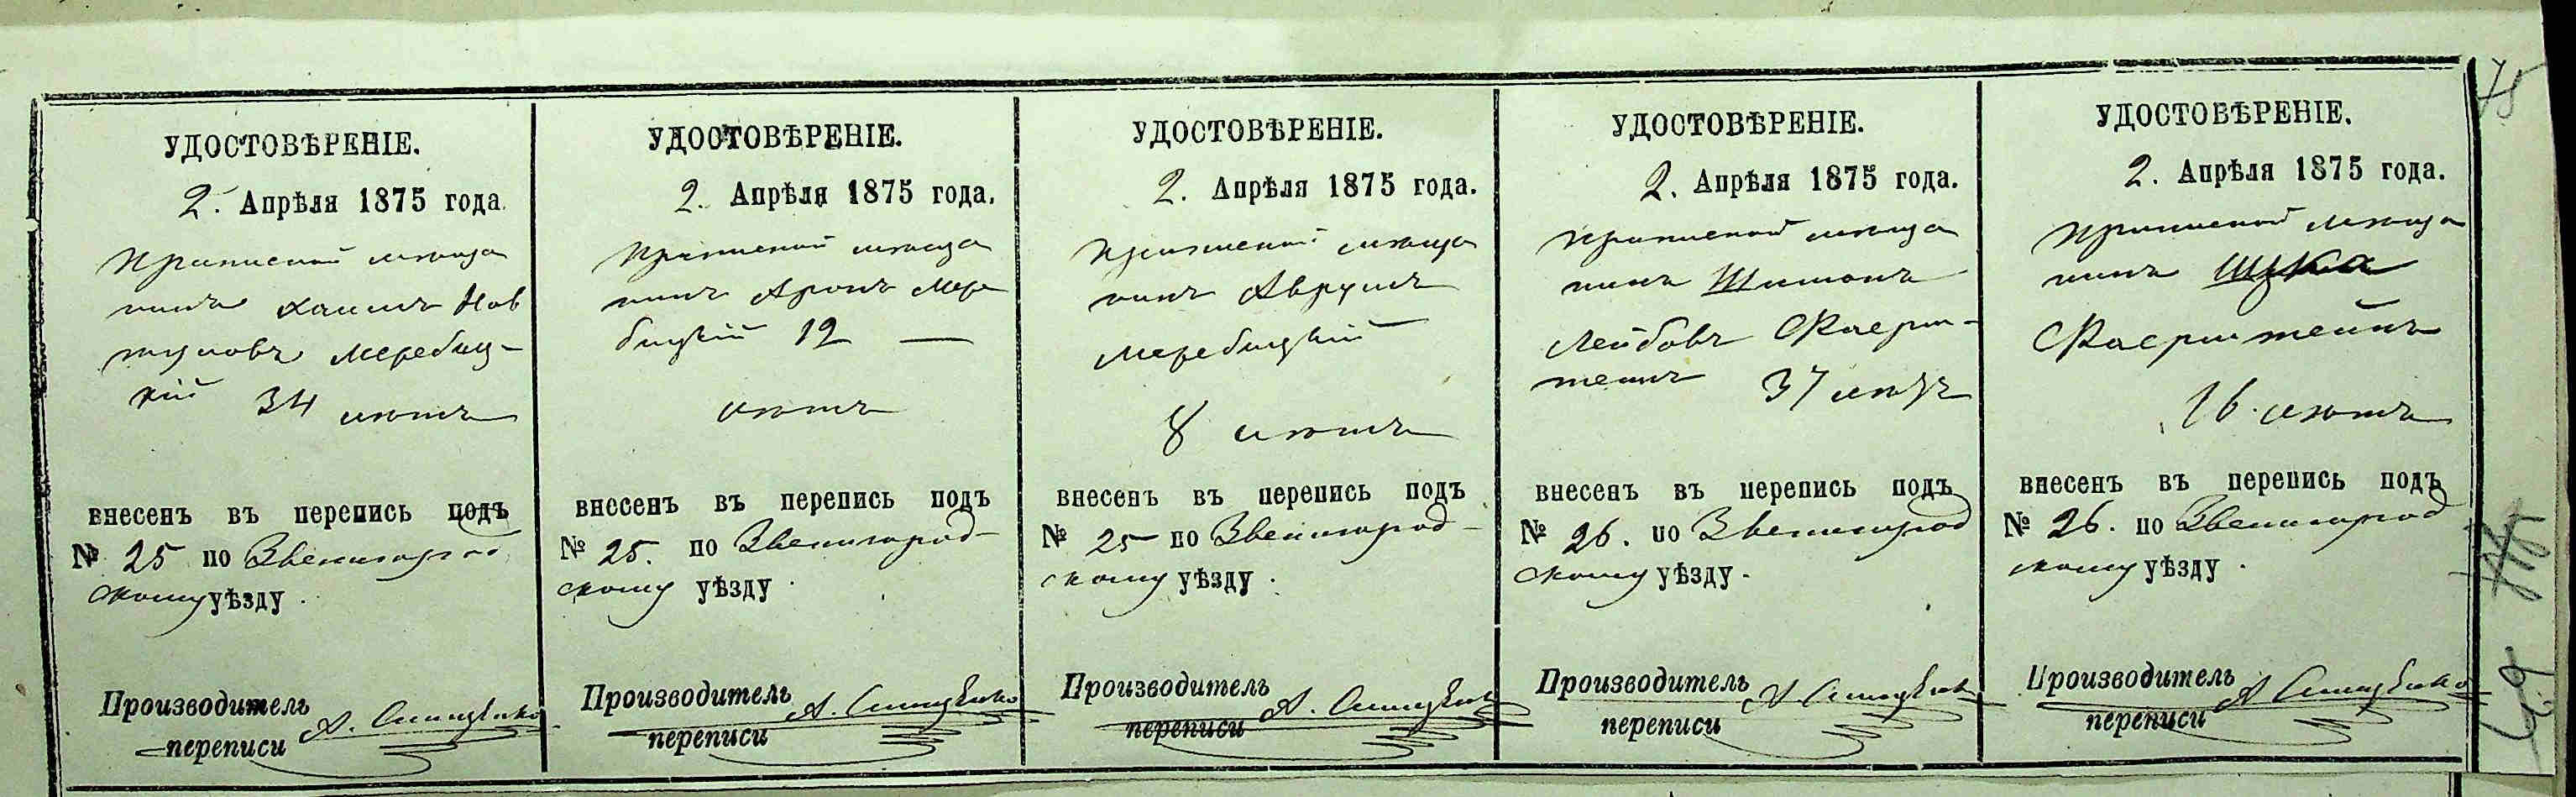 УДОСТОВѢРЕНІЕ.
2. Апрѣля 1875 года.
Приписной мѣща
нинъ Хаимъ Нов
туловъ Меребиц-
кій 34 лѣтъ
внесенъ въ перепись подъ
№ 25 по Звенигород
скому уѣзду.
Производитель А.
переписи
УДОСТОВѢРЕНІЕ.
2. Апрѣля 1875 года.
Приписной мѣща
нинъ Аронъ Мере
бицкій 12 —
лѣтъ
внесенъ въ перепись подъ
№ 25. по Звенигород-
скому уѣзду.
Производитель А.
переписи
УДОСТОВѢРЕНІЕ.
2. Апрѣля 1875 года.
Приписной мѣща
нинъ Аврумъ
Меребицкій
8 лѣтъ
внесенъ въ перепись подъ
№ 25 по Звенигород-
скому уѣзду.
Производитель А.
переписи
УДОСТОВѢРЕНІЕ.
2. Апрѣля 1875 года.
Приписной мѣща
нинъ Шимонъ
Лейбовъ Фаерш-
теинъ 37 лѣтъ
внесенъ въ перепись подъ
№ 26. по Звенигород
скому уѣзду.
Производитель А.
переписи
УДОСТОВѢРЕНІЕ.
2. Апрѣля 1875 года.
Приписной мѣща
нинъ
Фаерштейнъ
16 лѣтъ
внесенъ въ перепись подъ
№ 26. по Звенигород
скому уѣзду.
Производитель А.
переписи